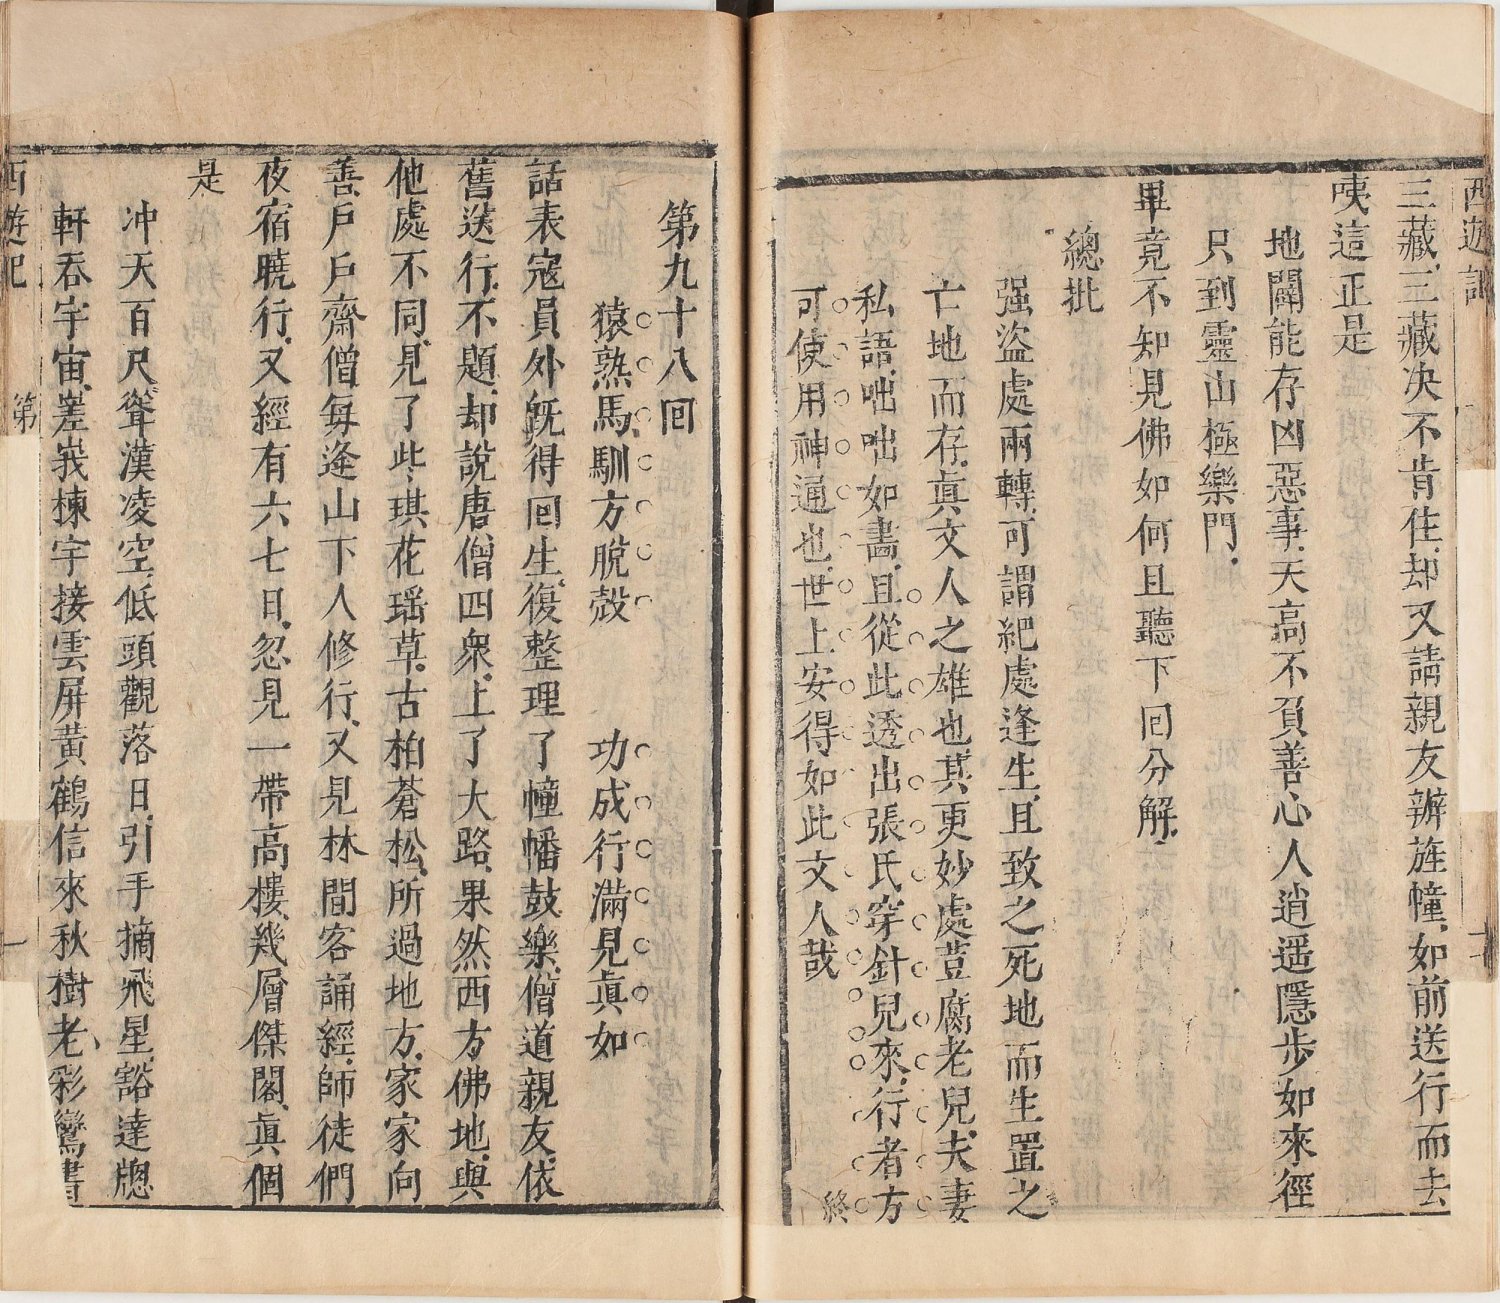 西遊記
三藏三藏决不肯住却又請親友辦旌幢如前送行而去
咦這正是
地闢能存凶惡事天高不負善心人逍遥隱步如來徑
只到靈山極樂門
畢竟不知見佛如何且聽下回分解
總批
强盜處兩轉可謂絕處逢生且致之死地而生置之
亡地而存眞文人之雄也其更妙處荳腐老兒夫妻
私語咄咄如畵且從此透出張氏穿針兒來行者方
可使用神通也世上安得如此文人哉
終
第九十八回
猿熟馬馴方脫殻　功成行滿見眞如
話表寇員外旣得回生復整理了幢幡鼓樂僧道親友依
舊送行不題却說唐僧四衆上了大路果然西方佛地與
他處不同見了些琪花瑶草古柏蒼松所過地方家家向
善戶戶齋僧每逢山下人修行又見林間客誦經師徒們
夜宿曉行又經有六七日忽見一帶高樓幾層傑閣眞個
是
冲天百尺聳漢凌空低頭觀落日引手摘飛星豁達牕
軒吞宇宙嵳峩棟宇接雲屏黃鶴信來秋樹老彩鸞書
西遊記　第　一